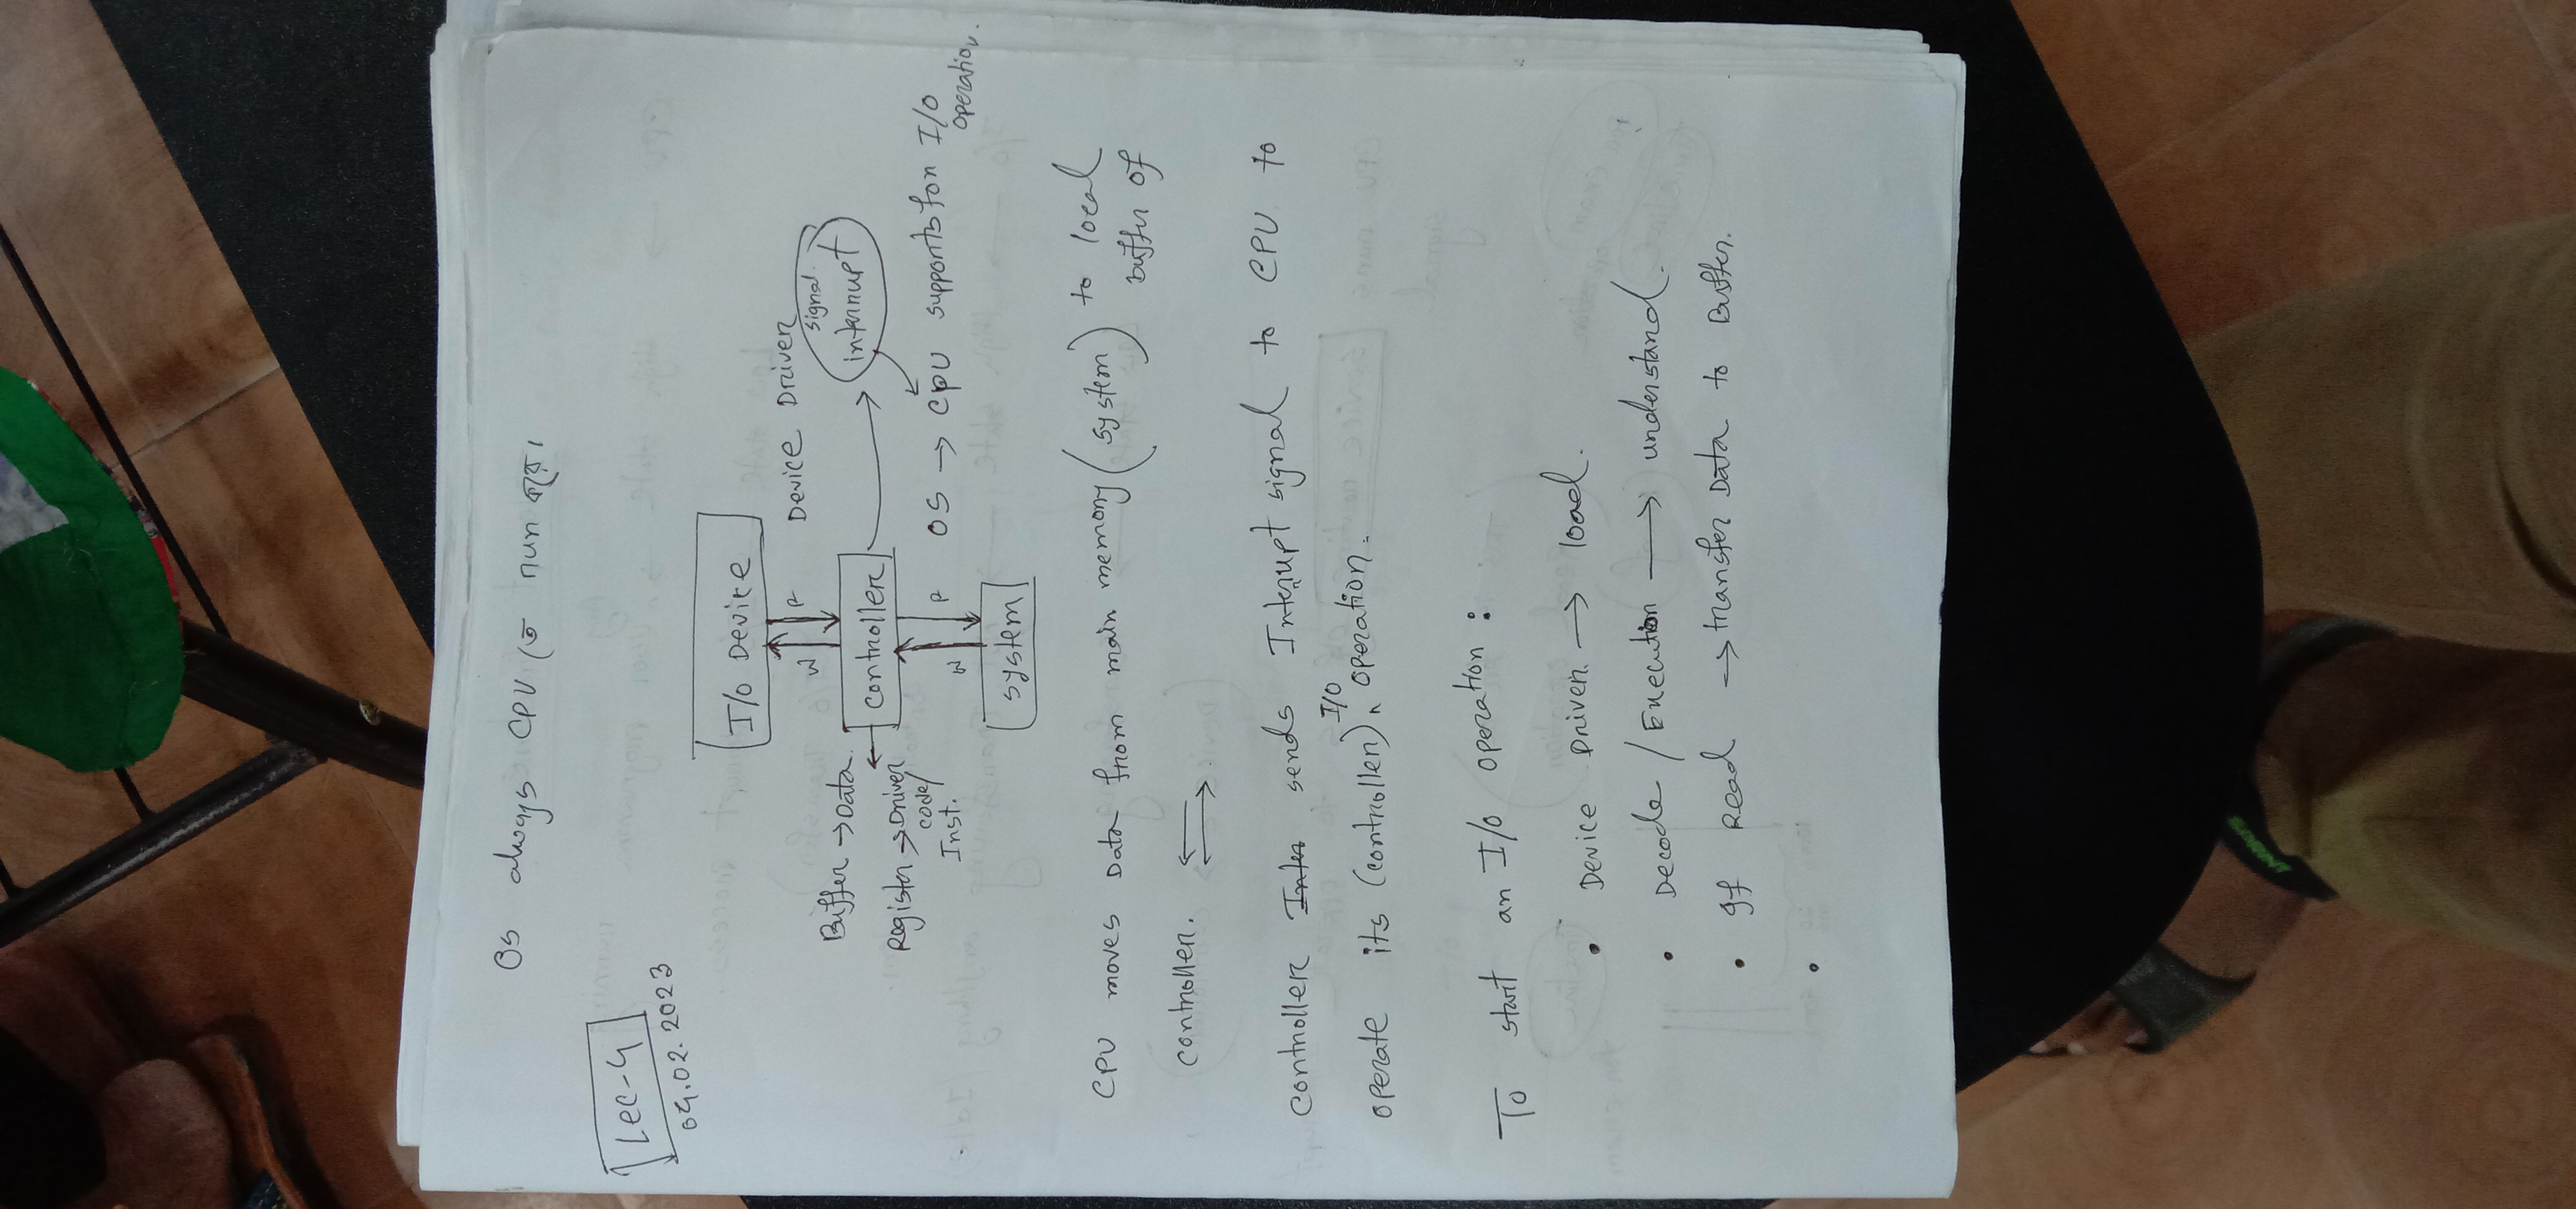 OS always CPU তে run করে।
Lec-4
04.02.2023
I/O Device
W R
Device Driver
signal
interrupt
Buffer → Data.
controller
Register → Driver
code/
Inst.
W R
OS → CPU supports for I/O
operation.
system
CPU moves Data from main memory (system) to local
buffer of
controller. ⇄
controller Inter sends Interrupt signal to CPU to
I/O
operate its (controller) ^ operation.
To start an I/O operation :
• Device Driver. → load.
• Decode / Execution → understand.
• If Read → transfer Data to Buffer.
•